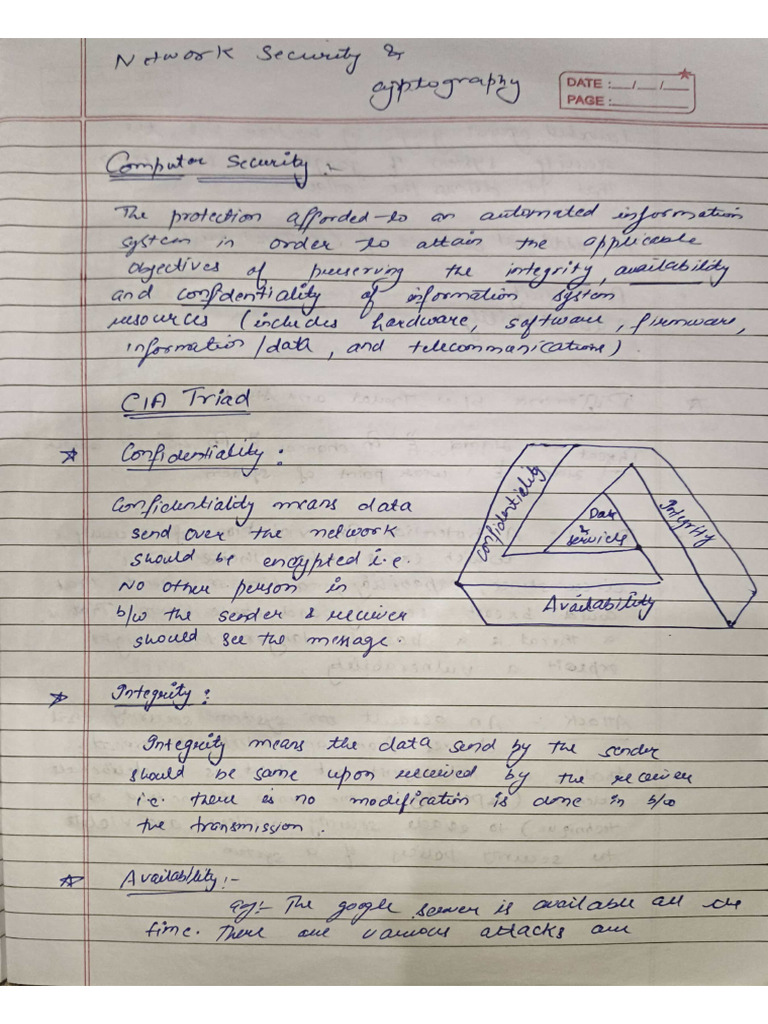 Network Security &
cyptography
DATE :__/__/__
PAGE :
Computer Security :-
The protection afforded to an automated information
system in order to attain the applicable
objectives of preserving the integrity, availability
and confidentiality of information system
resources (includes hardware, software, firmware,
information/data, and telecommunications)
CIA Triad
Confidentiality :
Confidentiality means data
send over the network
should be encrypted i.e.
No other person in
b/w the sender & receiver
should see the message.
Confidentiality
Integrity
Data
&
services
Availability
Integrity :
Integrity means the data send by the sender
should be same upon received by the receiver
i.e. there is no modification is done in b/w
the transmission.
Availability :-
eg:- The google server is available all the
time. There are various attacks are